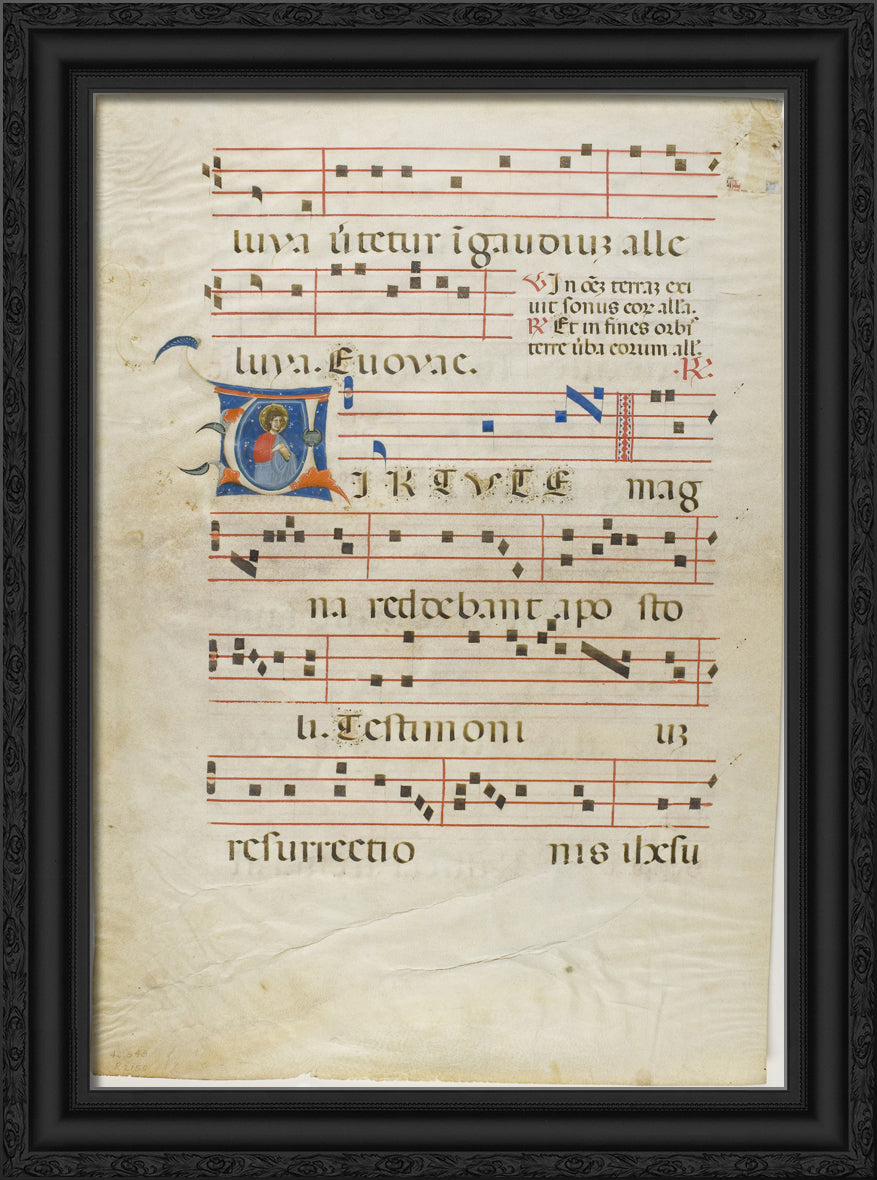 luya ūtetur ī gaudiuꝫ alle
luya. Euovae.
℣ In oēꝫ terraꝫ exi
uit sonus eoꝝ all'a.
℟ Et in fines orbis
terre ūba eorum all'.
·℟·
VIRTUTE mag
na reddebant apo sto
li. Testimoni uꝫ
resurrectio nis ihesu